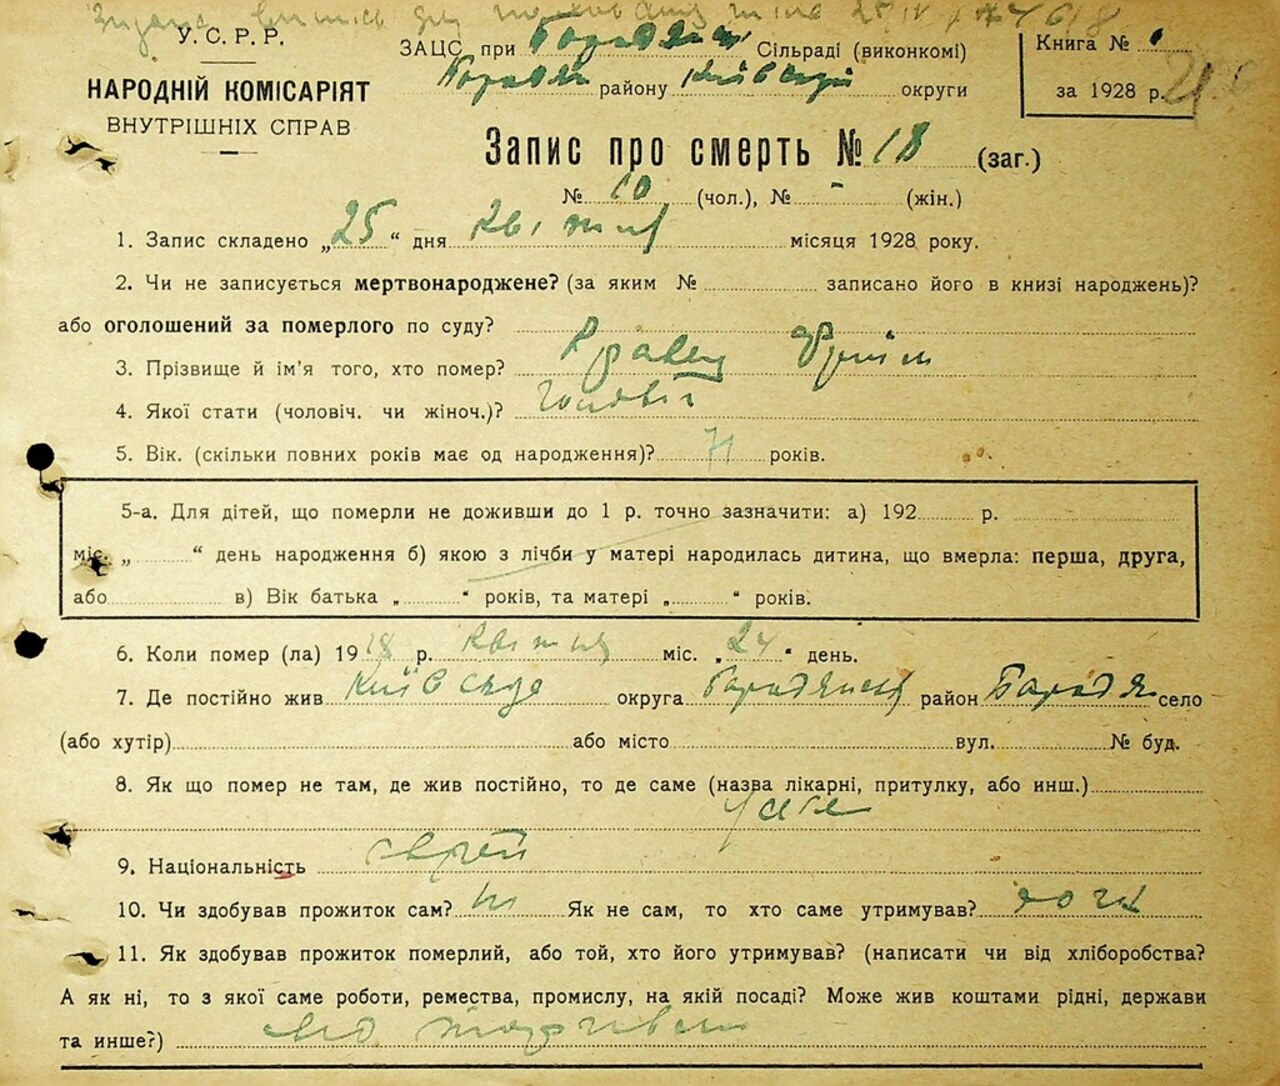 У.С.Р.Р.
НАРОДНІЙ КОМІСАРІЯТ
ВНУТРІШНІХ СПРАВ
ЗАЦС при Сільраді (виконкомі)
району Київської округи
Книга №
за 1928 р.
Запис про смерть № 18 (заг.)
№ 10 (чол.), № - (жін.)
1. Запис складено „25“ дня квітня місяця 1928 року.
2. Чи не записується мертвонароджене? (за яким № записано його в книзі народжень)?
або оголошений за померлого по суду?
3. Прізвище й ім'я того, хто помер? Кравец
4. Якої стати (чоловіч. чи жіноч.)?
5. Вік. (скільки повних років має од народження)? 71 років.
5-а. Для дітей, що померли не доживши до 1 р. точно зазначити: а) 192 р.
міс. „ “ день народження б) якою з лічби у матері народилась дитина, що вмерла: перша, друга,
або в) Вік батька „ “ років, та матері „ “ років.
6. Коли помер (ла) 19 р. квітня міс. „24“ день.
7. Де постійно жив округа район село
(або хутір) або місто вул. № буд.
8. Як що помер не там, де жив постійно, то де саме (назва лікарні, притулку, або инш.)
9. Національність єврей
10. Чи здобував прожиток сам? ні Як не сам, то хто саме утримував? дочка
11. Як здобував прожиток померлий, або той, хто його утримував? (написати чи від хліборобства?
А як ні, то з якої саме роботи, ремества, промислу, на якій посаді? Може жив коштами рідні, держави
та инше?)